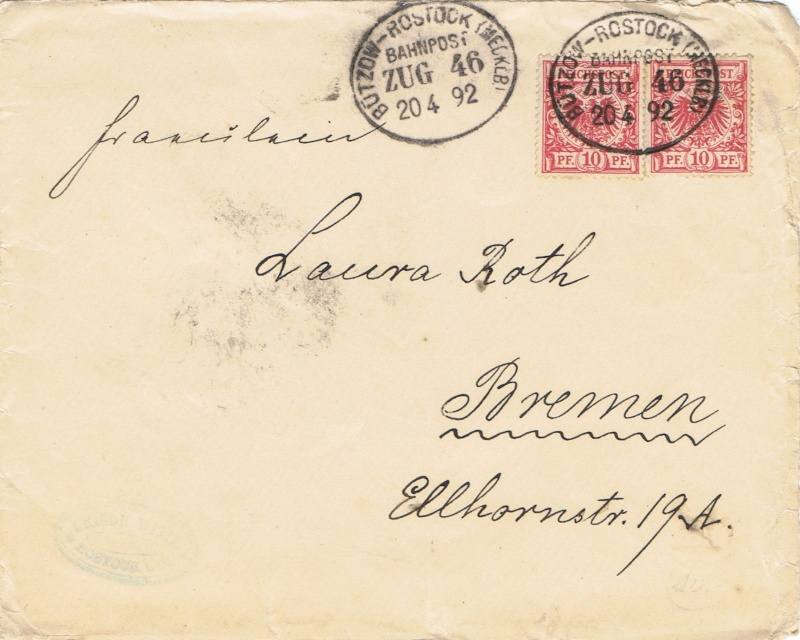 BÜTZOW-ROSTOCK (MECKLB)
BAHNPOST
ZUG 46
20 4 92
BÜTZOW-ROSTOCK (MECKLB)
BAHNPOST
ZUG 46
20 4 92
REICHSPOST
REICHSPOST
PF. 10 PF.
PF. 10 PF.
Fraeulein
Laura Roth
Bremen
Ellhornstr. 19A.
ROSTOCK